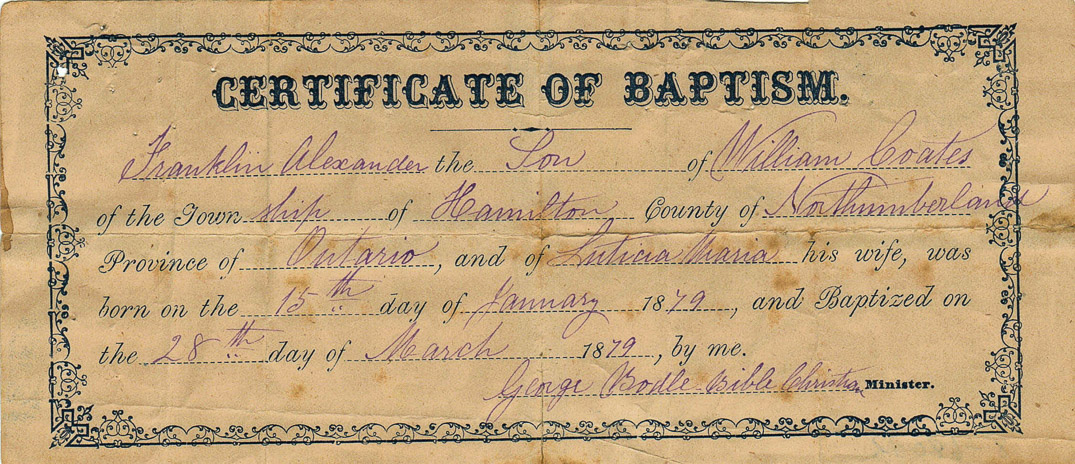 CERTIFICATE OF BAPTISM.
Franklin Alexander the Son of William Coates
of the Town ship of Hamilton County of Northumberland
Province of Ontario, and of Luticia Maria his wife, was
born on the 15th day of January 1879, and Baptized on
the 28th day of March 1879, by me.
George Bodle Bible Christian Minister.